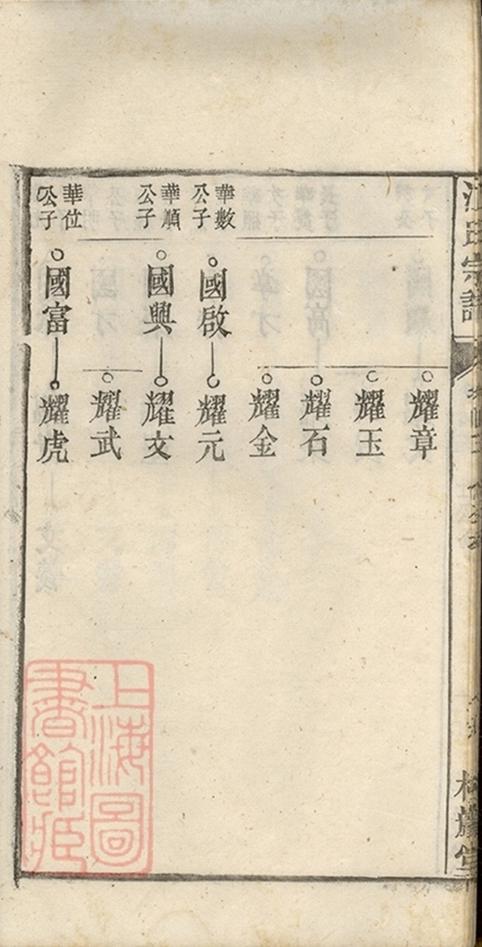 宗譜
耀章
耀玉
耀石
耀金
華數公子
國啟
耀元
華順公子
國興
耀文
耀武
華位公子
國富
耀虎
上海圖書館藏